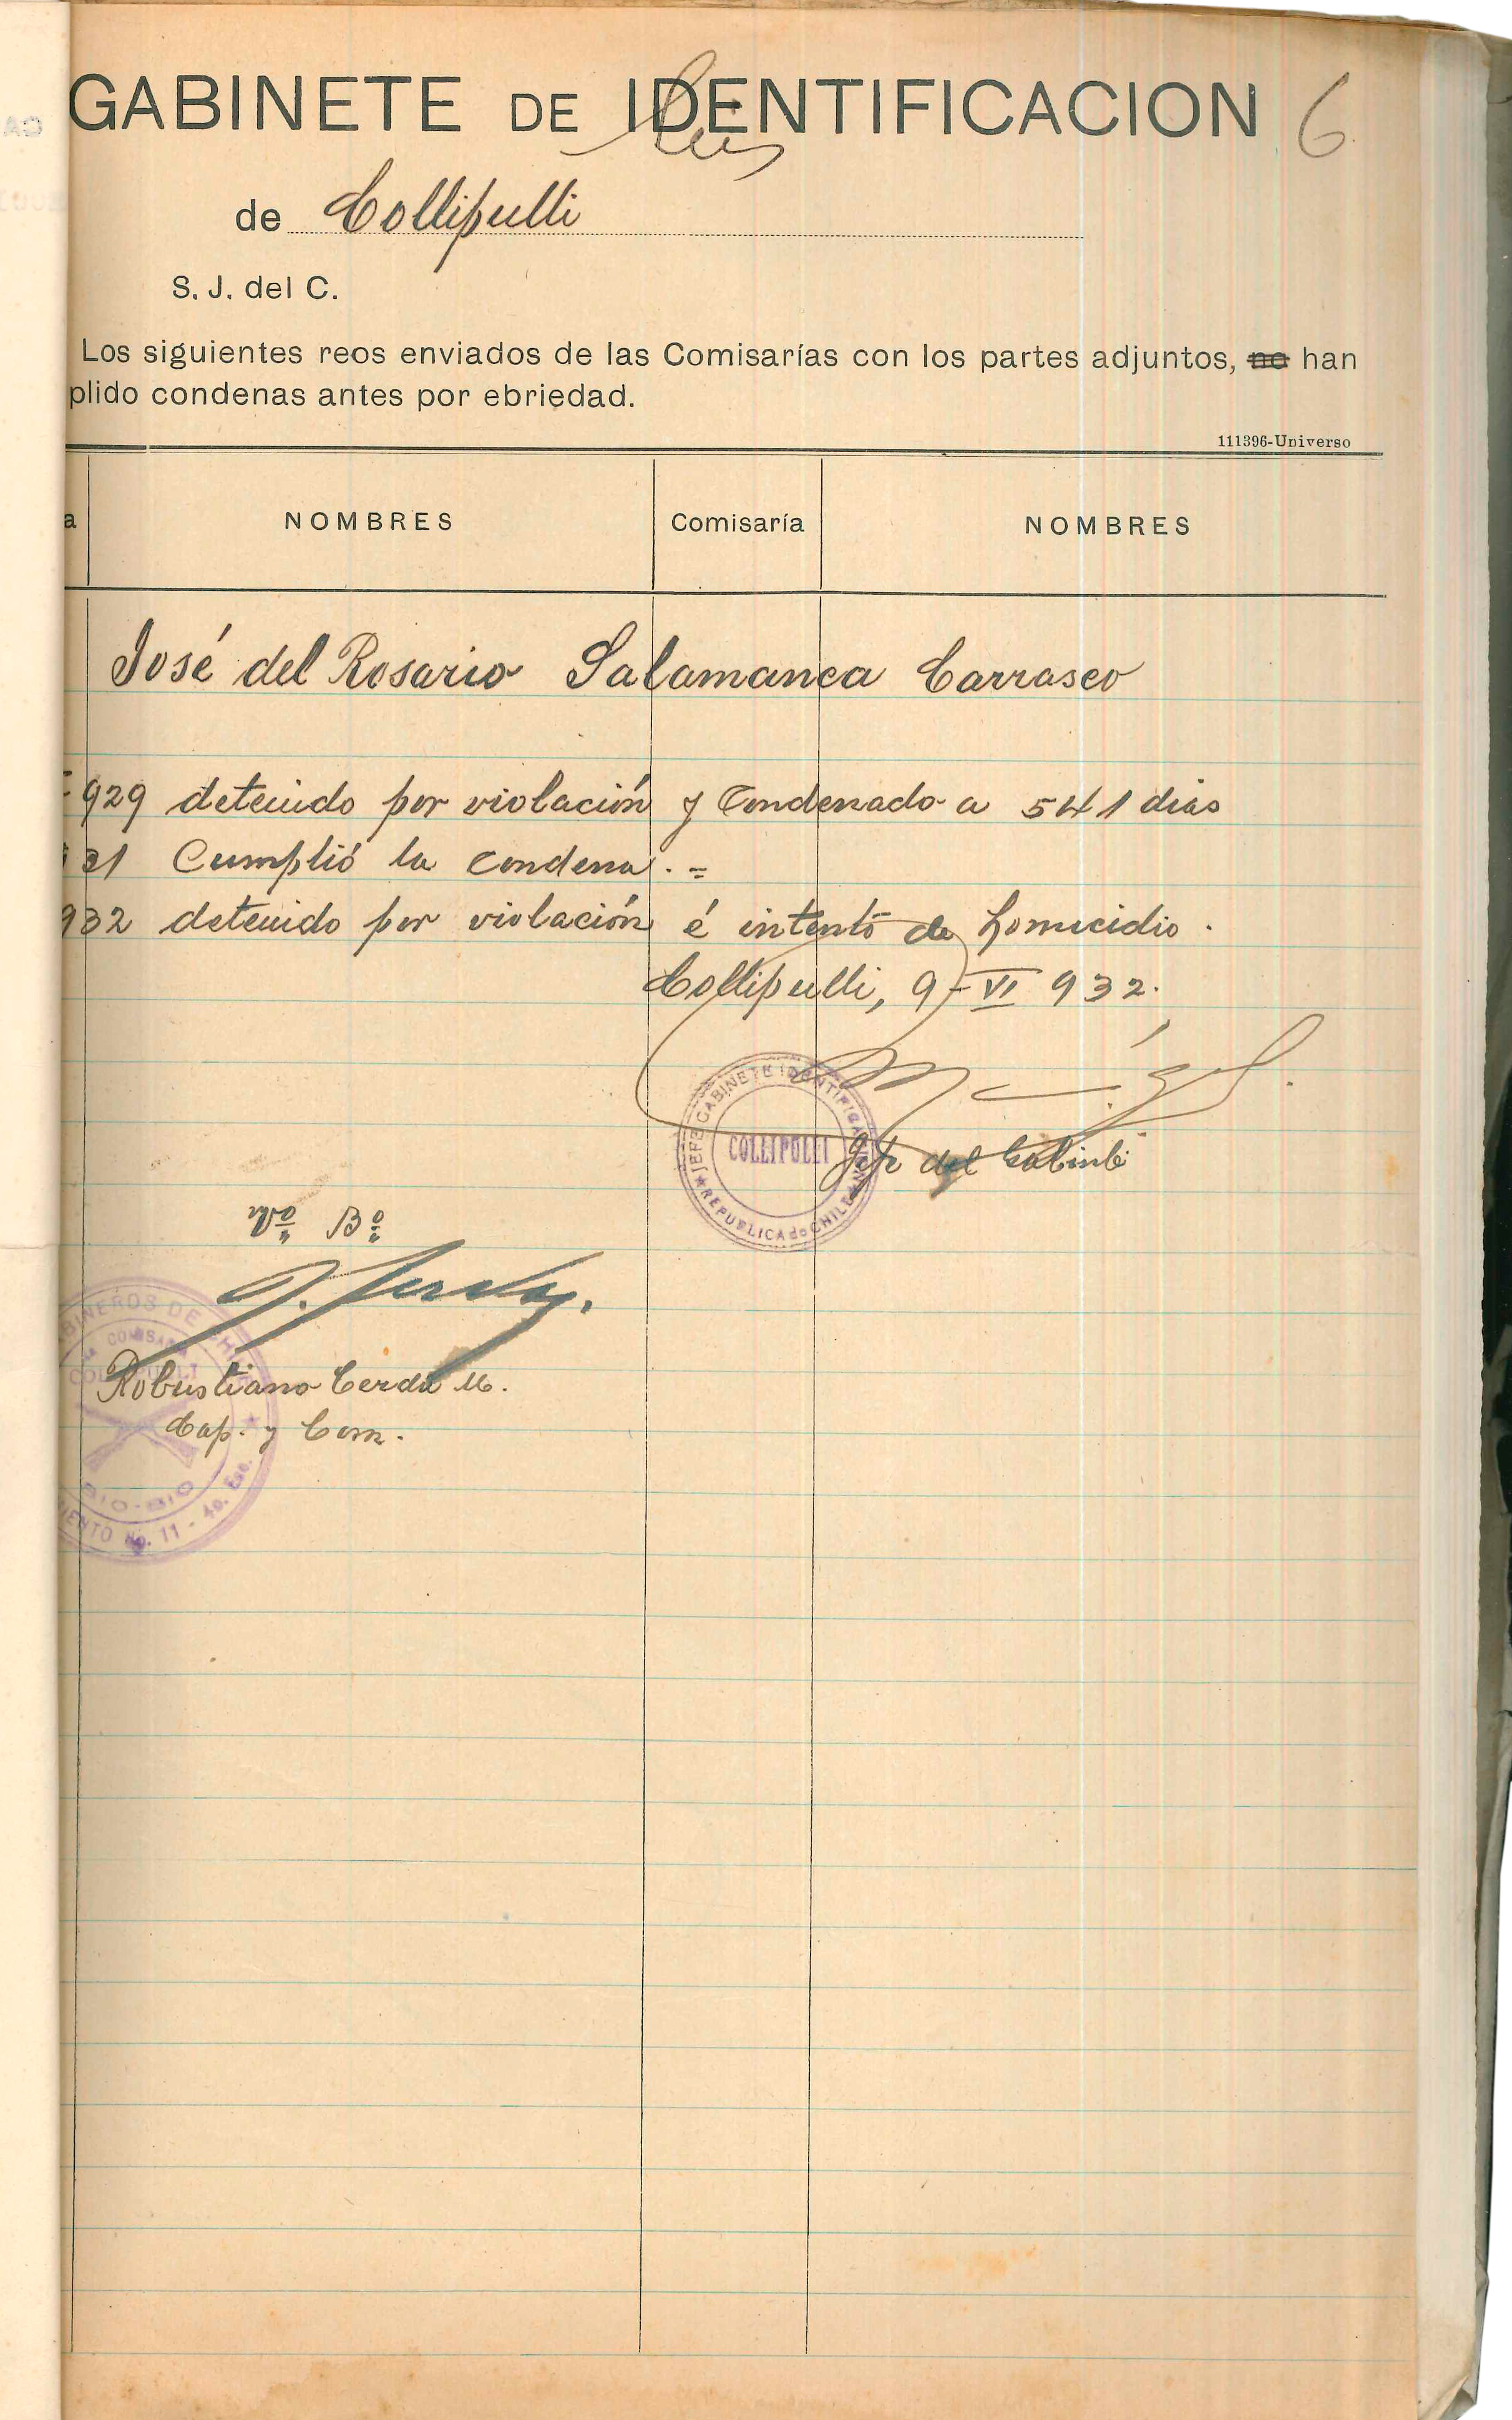 GABINETE DE IDENTIFICACION 6
Seis
de Collipulli
S. J. del C.
Los siguientes reos enviados de las Comisarías con los partes adjuntos, no han
plido condenas antes por ebriedad.
111396-Universo
a NOMBRES Comisaría NOMBRES
José del Rosario Salamanca Carrasco
929 detenido por violación y Condenado a 541 dias
31 Cumplió la condena . =
932 detenido por violación é intento de homicidio .
Collipulli, 9-VI 932.
JEFE GABINETE IDENTIFICACION
COLLIPULLI
REPUBLICA de CHILE
Jefe del Gabinete
Vº Bº
BINEROS DE CHILE
COMISARIA
COLLIPULLI
Robustiano Cerda M.
Cap. y Com.
BIO-BIO
IENTO No. 11 - 4o. Esc.